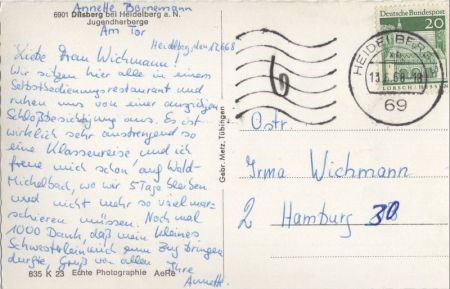 Annette Bornemann
6901 Dilsberg bei Heidelberg a. N.
Jugendherberge
Am Tor
Heidelberg, den 12.6.68
Liebe Frau Wichmann!
Wir sitzen hier alle in einem
Selbstbedienungsrestaurant und
ruhen uns von einer
Schloßbesichtigung aus. Es ist
wirklich sehr anstrengend so
eine Klassenreise und ich
freue mich schon auf Wald-
Michelbach, wo wir 5 Tage bleiben
und nicht mehr so viel mar-
schieren müssen. Noch mal
1000 Dank, daß mein kleines
Schwesterlein mich zum Zug bringen
durfte, Gruß von allen Ihre
Annette.
835 K 23 Echte Photographie AeRe
Gebr. Metz, Tübingen
Deutsche Bundespost
20
LORSCH/HESSEN
HEIDELBERG
69
Irma Wichmann
2 Hamburg 30